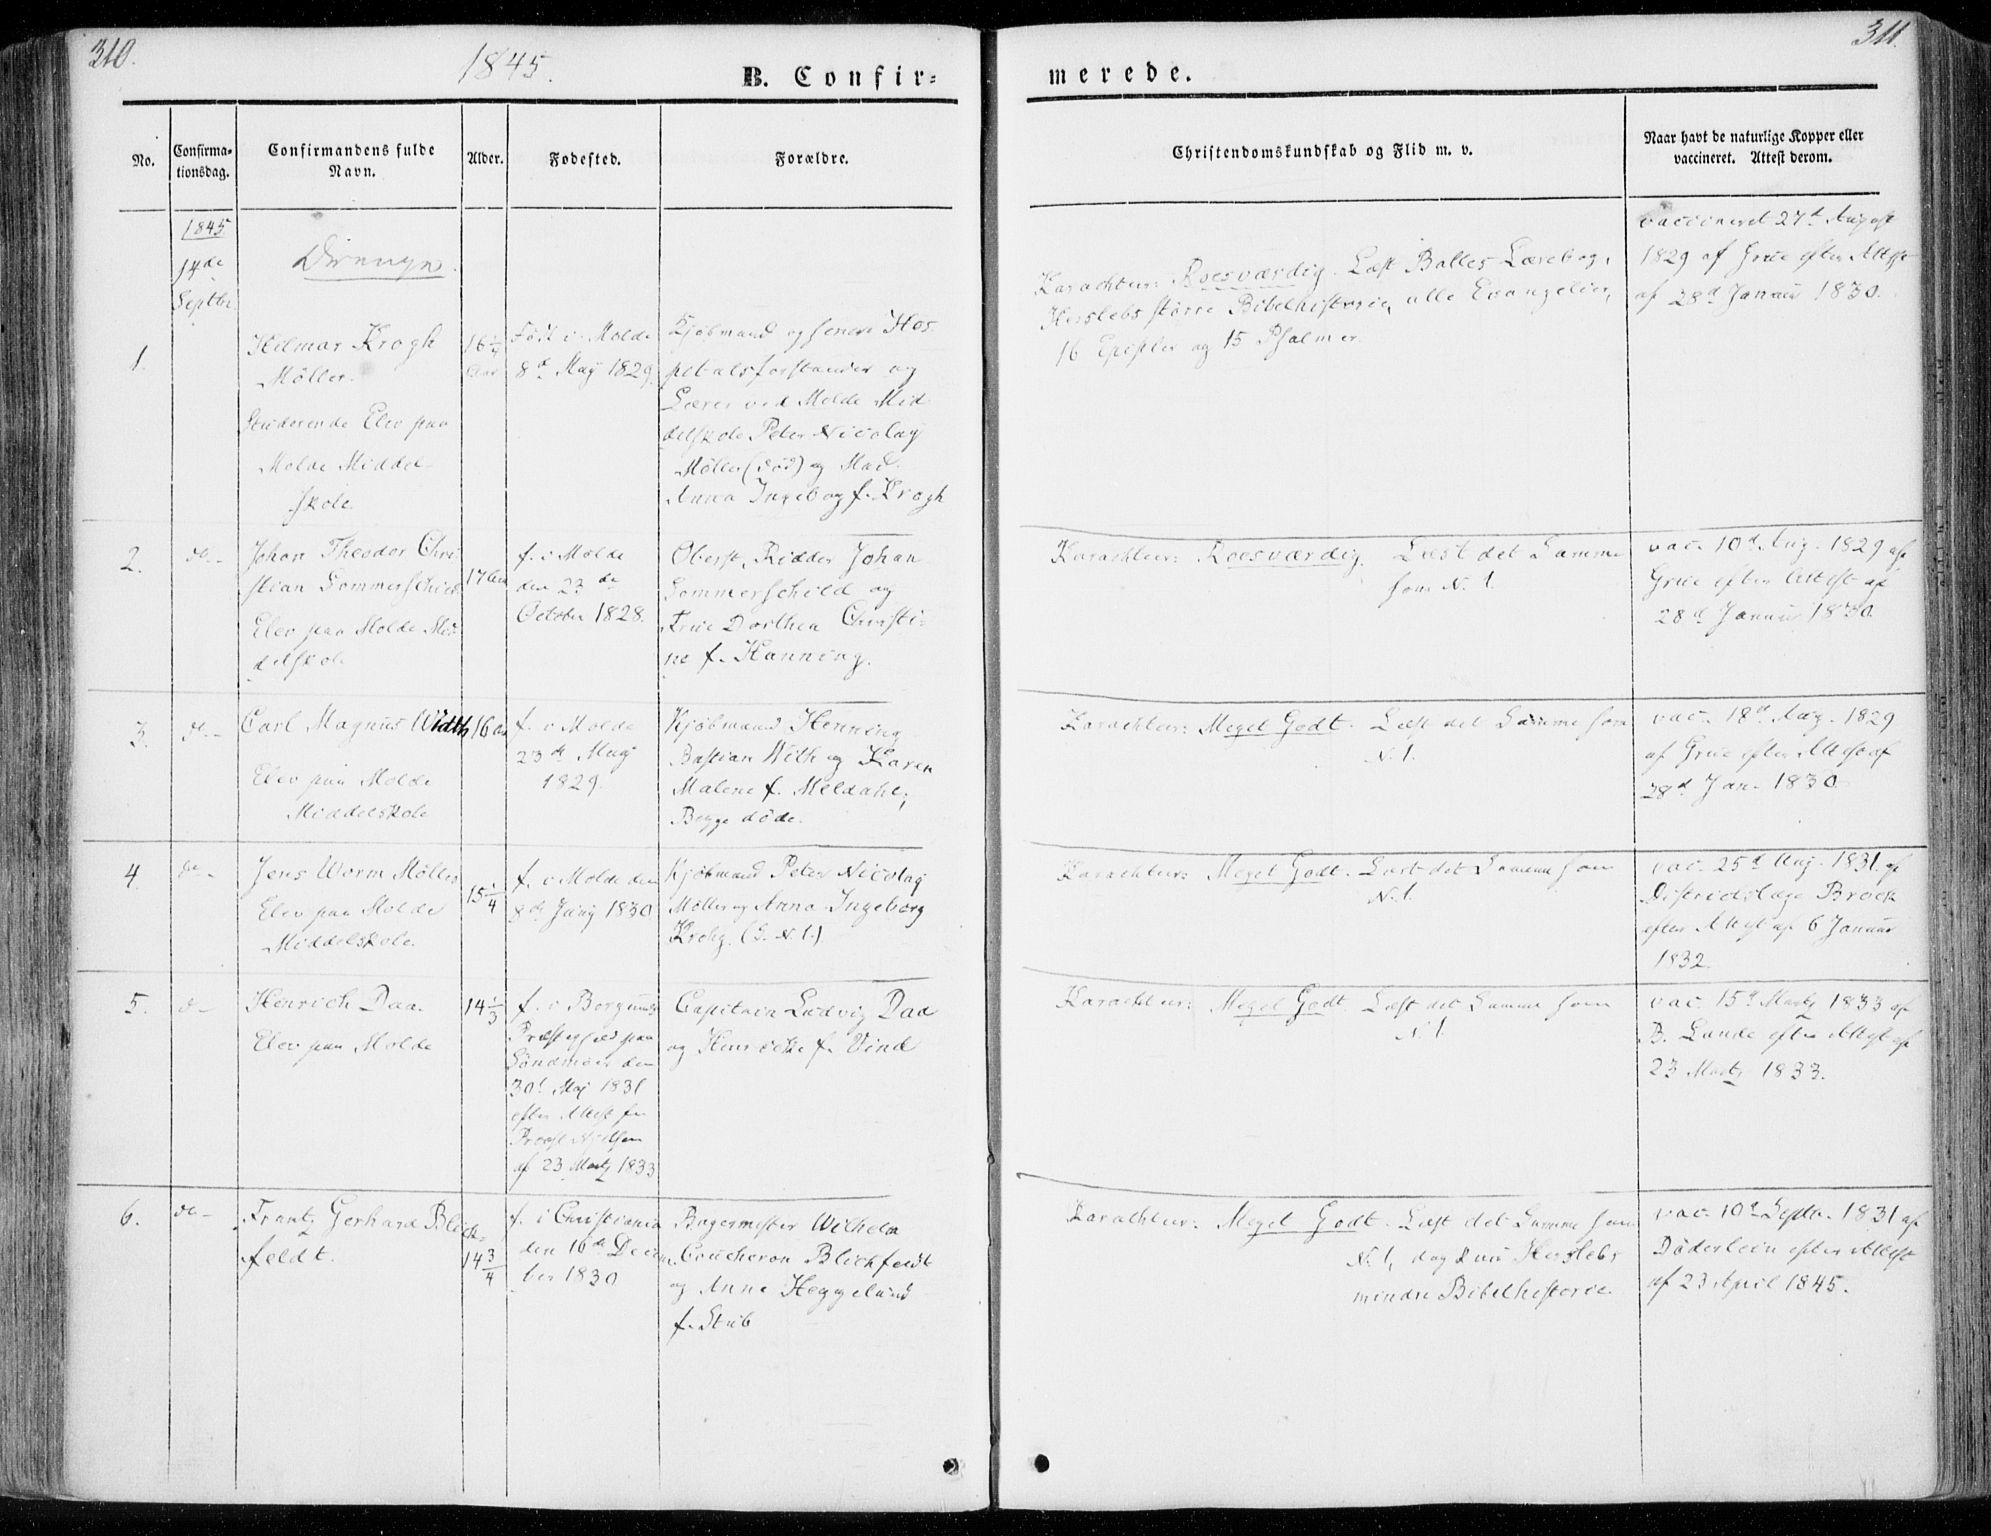 310.
1845.
B. Confir=
No.
Confirma-
tionsdag.
Confirmandens fulde
Navn.
Alder.
Fødested.
Forældre.
1845
14de
Septbr
Drenge.
1.
Hilmar Krogh
Möller.
Studerende Elev paa
Molde Middel-
skole.
16 1/4
Aar
Født i Molde
8d May 1829.
Kjøbmand og senere Hos
pitalsforstander og
Lærer ved Molde Mid
delskole Peter Nicolay
Möller (død) og Mad.
Anna Ingeborg f. Krogh
2.
do-
Johan Theodor Chri
stian Sommerschild
Elev paa Molde Mid
delskole
17 Aar
f. i Molde
den 23de
October 1828.
Oberst, Ridder Johan
Sommerschild og
Frue Dorthea Christi-
ne f. Hanning.
3.
do-
Carl Magnus Width
Elev paa Molde
Middelskole
16 Aar
f. i Molde
23de May
1829.
Kjøbmand Henning
Bastian With og Karen
Malene f. Meldahl;
Begge døde.
4.
do-
Jens Worm Möller
Elev paa Molde
Middelskole.
15 1/4
f. i Molde den
8de Juny 1830
Kjøbmand Peter Nicolay
Möller og Anna Ingeborg
Krohg. (S. N. 1.)
5.
do-
Henrich Daa.
Elev paa Molde
14 1/3
f. i Borgunds
Præstegjeld paa
Søndmøer den
30t May 1831
efter Attest fra
Provst
af 23 Marts 1833
Capitain Ludvig Daa
og Henrikke f. Vind
6.
do-
Frantz Gerhard Blich-
feldt.
14 3/4
f. i Christiania
den 16de Decem
ber 1830
Borgermester Wilhelm
Coucheron Blichfeldt
og Anne Heggelund
f. Stub
311.
merede.
Christendomskundskab og Flid m. v.
Naar havt de naturlige Kopper eller
vaccineret. Attest derom.
Karachteer: Roesværdig. Læst Balles Lærebog,
Herslebs større Bibelhistorie, alle Evangelier,
16 Epistler og 15 Psalmer.
vaccineret 27d August
1829 af Grue efter Attest
af 28d Januar 1830.
Karachteer: Roesværdig. Læst det Samme
som N. 1.
vac. 10d Aug. 1829 af
Grue efter Attest af
28d Januar 1830
Karachteer: Meget Godt. Læst det Samme som
N. 1.
vac. 18d Aug. 1829
af Grue efter Attest af
28d Jan. 1830.
Karachteer: Meget Godt. Læst det Samme som
N. 1.
vac. 25d Aug. 1831. af
Districtslæge Brock
efter Attest af 6 Januar
1832.
Karachteer: Meget Godt. Læst det Samme som
N. 1
vac. 15d Martz 1833 af
B. Lunde efter Attest af
23 Martz 1833.
Karachteer: Meget Godt. Læst det Samme som
N. 1, dog kun Herslebs
mindre Bibelhistorie.
vac. 10d Septr. 1831 af
Döderlein efter Attest
af 23 April 1845.